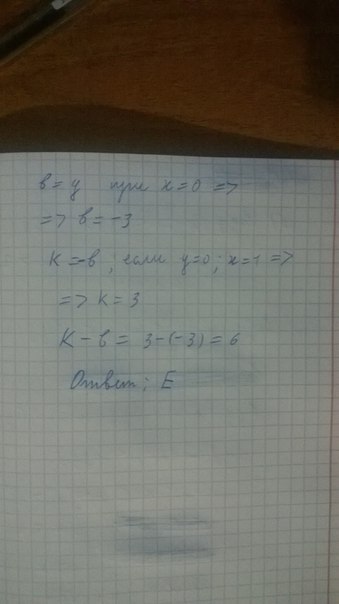 в = y при x = 0 =>
=> в = -3
K = -в ; если y=0 ; x=1 =>
=> K = 3
K - в = 3-(-3) = 6
Ответ ; E